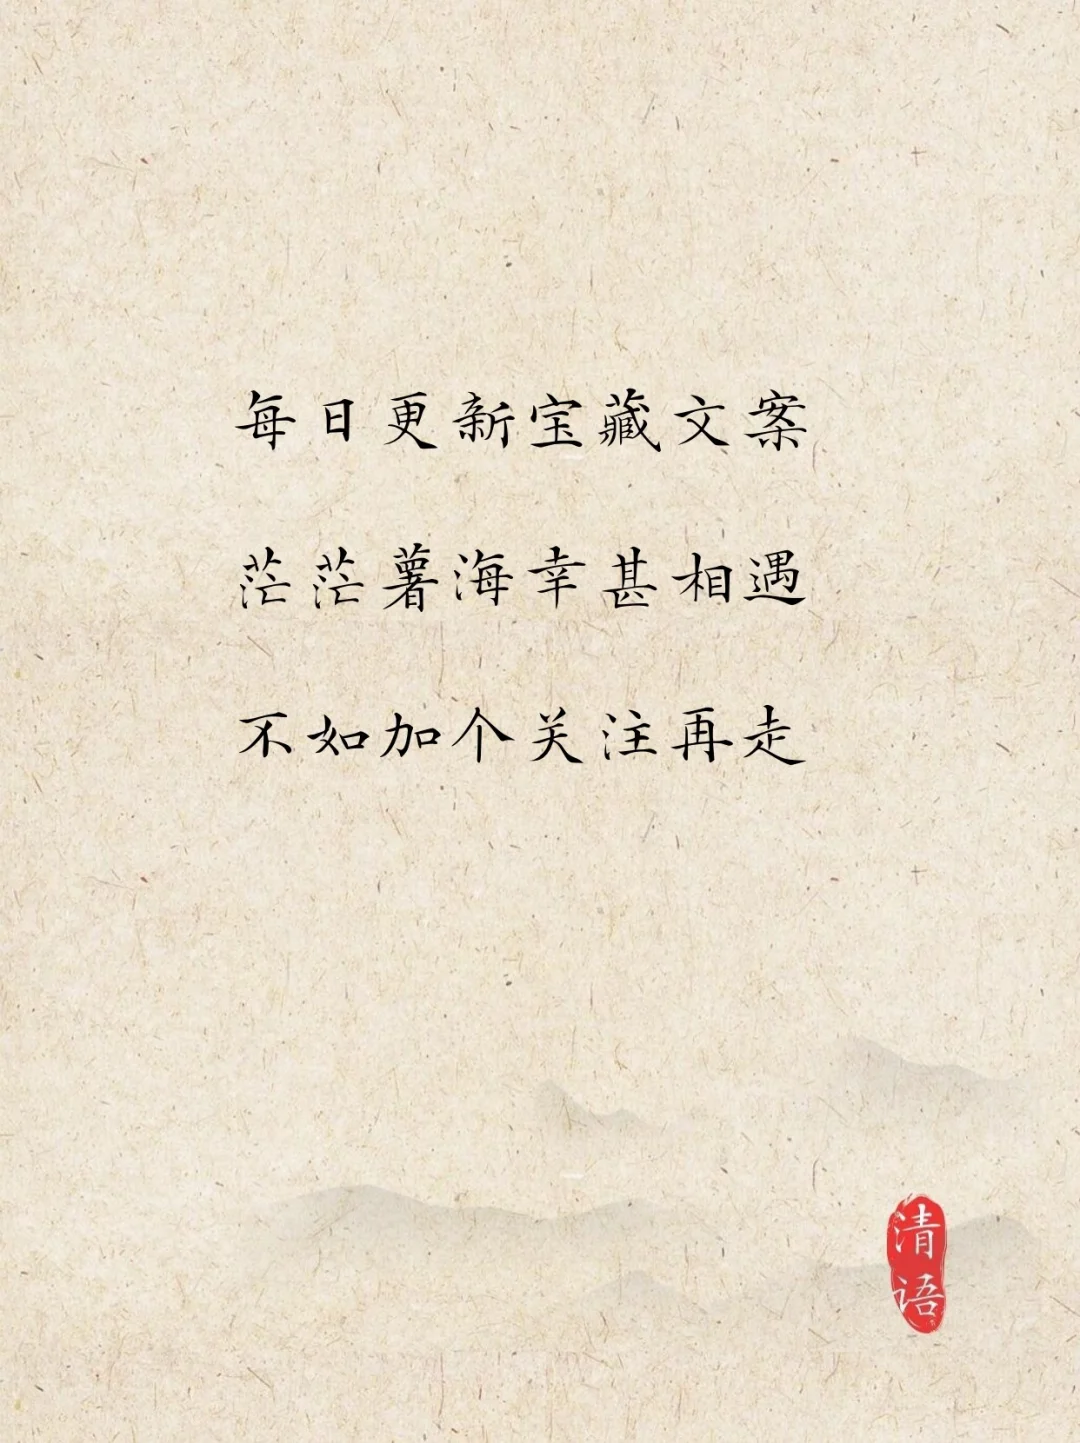 每日更新宝藏文案
茫茫薯海幸甚相遇
不如加个关注再走
清语